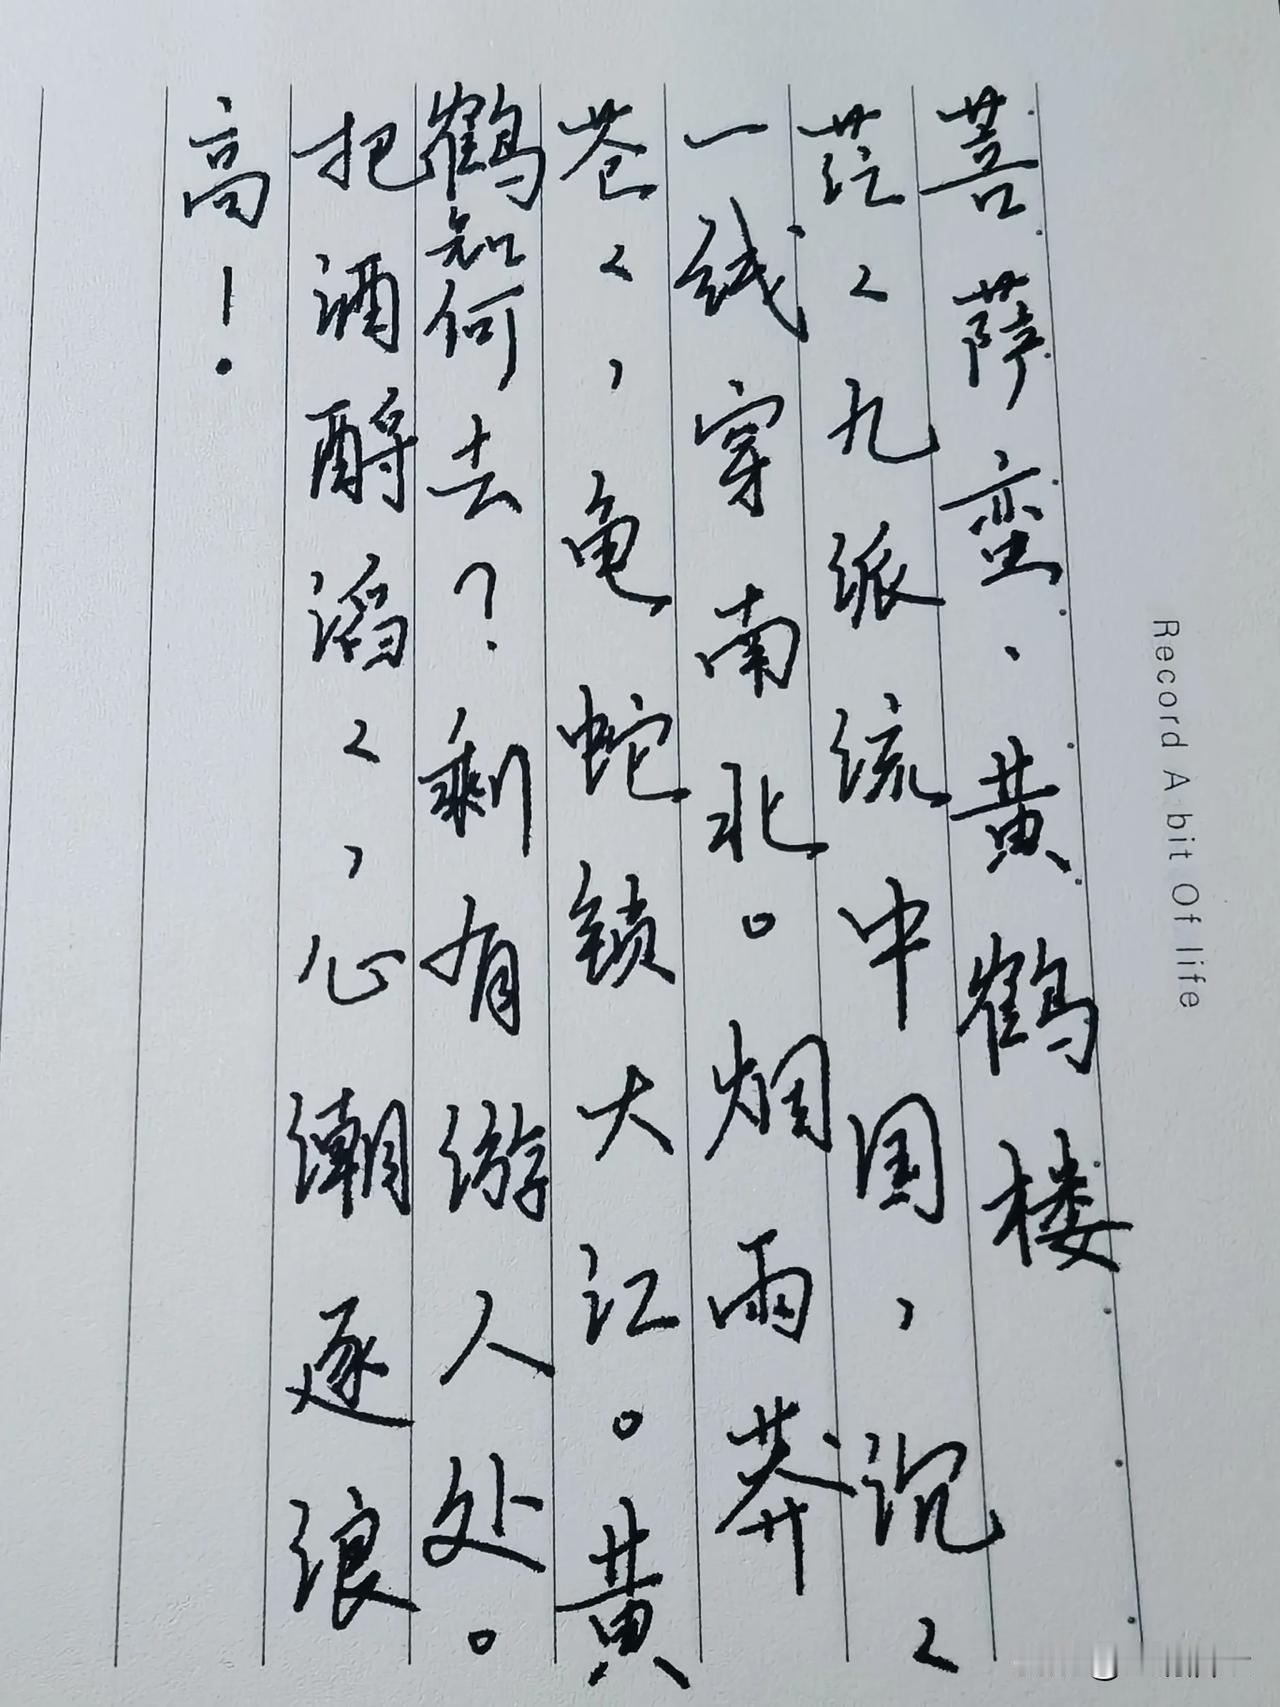 Record A bit Of life
菩萨蛮、黄鹤楼
茫〻九派流中国，沉〻
一线穿南北。烟雨莽
苍〻，龟蛇锁大江。黄
鹤知何去？剩有游人处。
把酒酹滔〻，心潮逐浪
高！